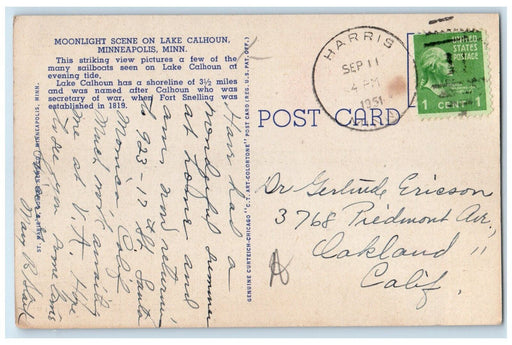 MOONLIGHT SCENE ON LAKE CALHOUN,
MINNEAPOLIS, MINN.
This striking view pictures a few of the
many sailboats seen on Lake Calhoun at
evening tide.
Lake Calhoun has a shoreline of 3½ miles
and was named after Calhoun who was
secretary of war, when Fort Snelling was
established in 1819.
HARRIS
SEP 11
4 PM
1951
MINN
UNITED
STATES
POSTAGE
1 CENT 1
POST CARD
GENUINE CURTEICH-CHICAGO "C.T. ART-COLORTONE" POST CARD (REG. U.S. PAT. OFF.)
MINNEAPOLIS, MINN.
Have had a
wonderful summer
at home and
am now returning
to 923-17th St. Santa
Monica Calif.
Much work awaiting
me at V.A. Hope
you
May
Dr Gertrude Ericson
3768 Piedmont Av,
Oakland 11
Calif.